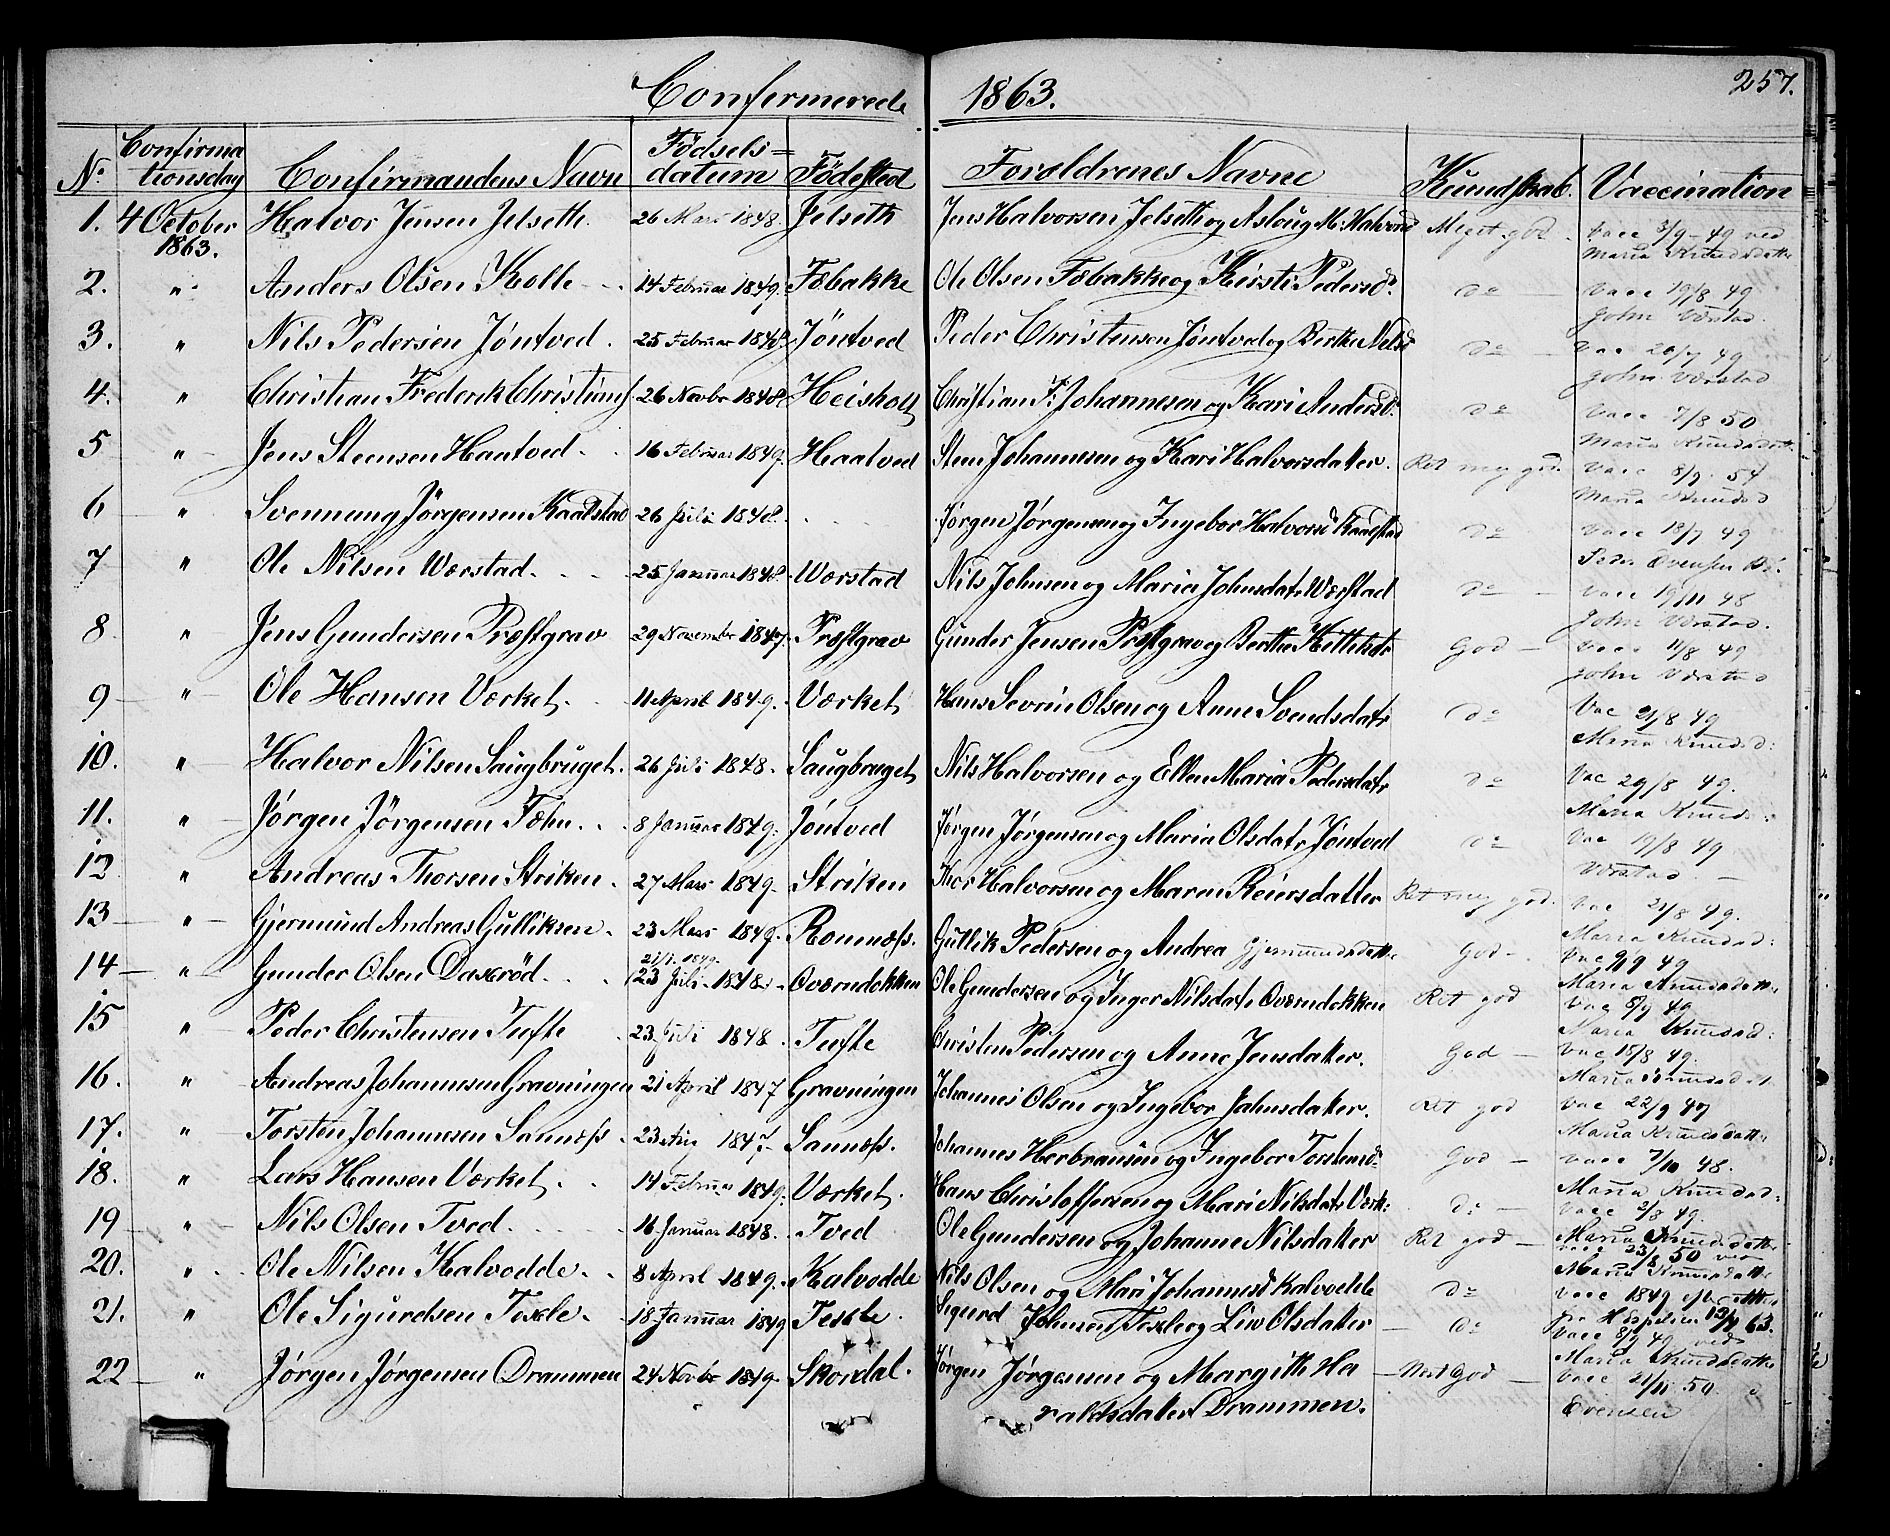 Confirmerede 1863. 257.
No. Confirmationsday Confirmandens Navn Födsels=datum Födested Forældrenes Navne Kundskab. Vaccination
1. 4 October 1863. Halvor Jensen Jelseth. 26 Mars 1848. Jelseth Jens Halvorsen Jelseth og Asloug M. Halvorsd Meget god. Vacc 3/9 - 49 ved Maria Knudsdatte
2. " Anders Olsen Kolle 14 Februar 1849. Fæbakke Ole Olsen Fæbakke og Kirsti Pedersd. do Vacc 19/8 49 John Værstad.
3. " Nils Pedersen Jöntved. 25 Februar 1848. Jöntved Peder Christensen Jöntved og Berthe Nilsd do Vac 26/7 49 John Værstad
4. " Christian Frederik Christians. 26 Novbr 1848. Heisholt Christian F. Johannesen og Kari Andersd. do Vacc 7/8 50 Maria Knudsdatt.
5 " Jens Steensen Haatved. 16 Februar 1849. Haatved Steen Johannesen og Kari Halvorsdatter. Ret meg god. Vacc 8/9 54 Maria Knudsd
6 " Svennung Jörgensen Kaasstad 26 Juli 1848. Jörgen Jörgensen og Ingebor Halvorsd Kaasstad do Vacc 18/7 49 Evensen
7 " Ole Nilsen Wærstad. 25 Januar 1848. Wærstad Nils Johnsen og Maria Johnsdatr Wærstad do Vacc 19/11 48 John Værstad.
8 " Jens Gundersen Præstgrav 29 November 1847. Præstgrav Gunder Jensen Præstgrav og Berthe Kittilsdr God Vacc 11/8 49 John Værstad
9 " Ole Hansen Værket. 11 April 1849. Værket Hans Severin Olsen og Anne Svendsdatr do Vac 21/8 49 Maria Knudsd:
10. " Halvor Nilsen Saugbruget. 26 Juli 1848. Saugbruget Nils Halvorsen og Ellen Maria Pedersdatr do Vac 29/8 49. Maria Knudsd:
11. " Jörgen Jörgensen Fæhn. 8 Januar 1849. Jöntved Jörgen Jörgensen og Maria Olsdatr Jöntved do Vac 19/8 49 Værstad.
12 " Andreas Thorsen Striken. 27 Mars 1849. Striken Thor Halvorsen og Maren Reiersdatter Ret meg god. Vac 21/8 49. Maria Knudsd:
13 " Gjermund Andreas Gulliksen. 23 Mars 1849. Romnæss. Gullik Pedersen og Andrea Gjermundsdatte God Vac 9/9 49 Maria Knudsdatte
14 " Gunder Olsen Daxeröd. 21/1. 1849. (23 Juli 1848. Oværndokken Ole Gundersen og Inger Nilsdatr Oværndokken Ret god Vac 5/9 49 Maria Knudsd:
15 " Peder Christensen Tufte 23 Juli 1848. Tufte Christen Pedersen og Anne Jensdatter. God Vac 15/8 49. Maria Knudsdat.
16. " Andreas Johannesen Gravningen 21 April 1847 Gravningen Johannes Olsen og Ingebor Johnsdatter. Ret god Vac 22/9 47 Maria Knudsdatte
17. " Torsten Johannesen Sannæss. 23 Aug 1847. Sannæss. Johannes Herbransen og Ingebor Torstensd. God Vacc 7/10 48. Maria Knudsd:
18. " Lars Hansen Værket. 14 Februar 1849. Værket. Hans Christoffersen og Mari Nilsdatr Værk. do Vacc 2/8 49. Maria Knudsdatte
19 " Nils Olsen Tved. 16 Januar 1848. Tved Ole Gundersen og Johanne Nilsdatter Ret god Vacc 23/8 50 ved Maria Knudsdatte
20. " Ole Nilsen Kalvodde. 8 April 1849. Kalvodde Nils Olsen og Mari Johannesd Kalvodde do Vacc 1849
21. " Ole Sigurdsen Texle. 18 Januar 1849 Texle. Sigurd Johnsen Texle og Liv Olsdatter do Vacc 8/9 49 ved Maria Knudsdatte
22 " Jörgen Jörgensen Drammen 24 Novbr 1849. Skordal. Jörgen Jörgensen og Margith Haraldsdatter Drammen. Næst God Vacc 21/11 50 Evensen